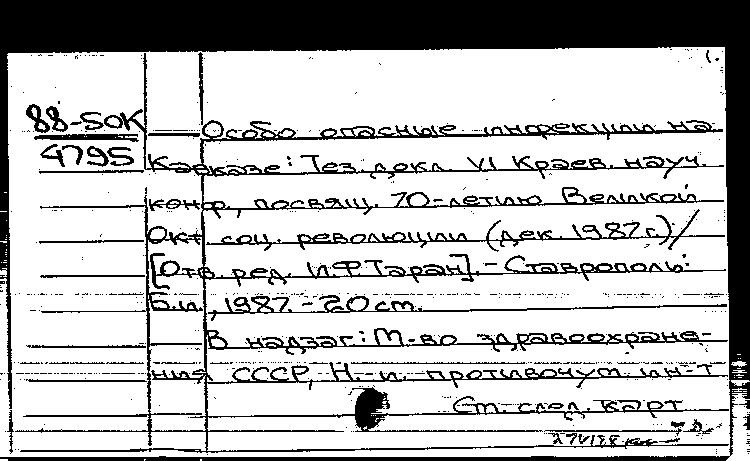 1.
88-5ОК
4795
Особо опасные инфекции на
Кавказе: Тез. докл. VI Краев. науч.
конф., посвящ. 70-летию Великой
Окт. соц. революции (дек. 1987 г.) /
[Отв. ред. И.Ф. Таран]. - Ставрополь:
Б.и., 1987. - 20 см.
В надзаг.: М-во здравоохране-
ния СССР, Н.-и. противочум. ин-т
См. след. карт